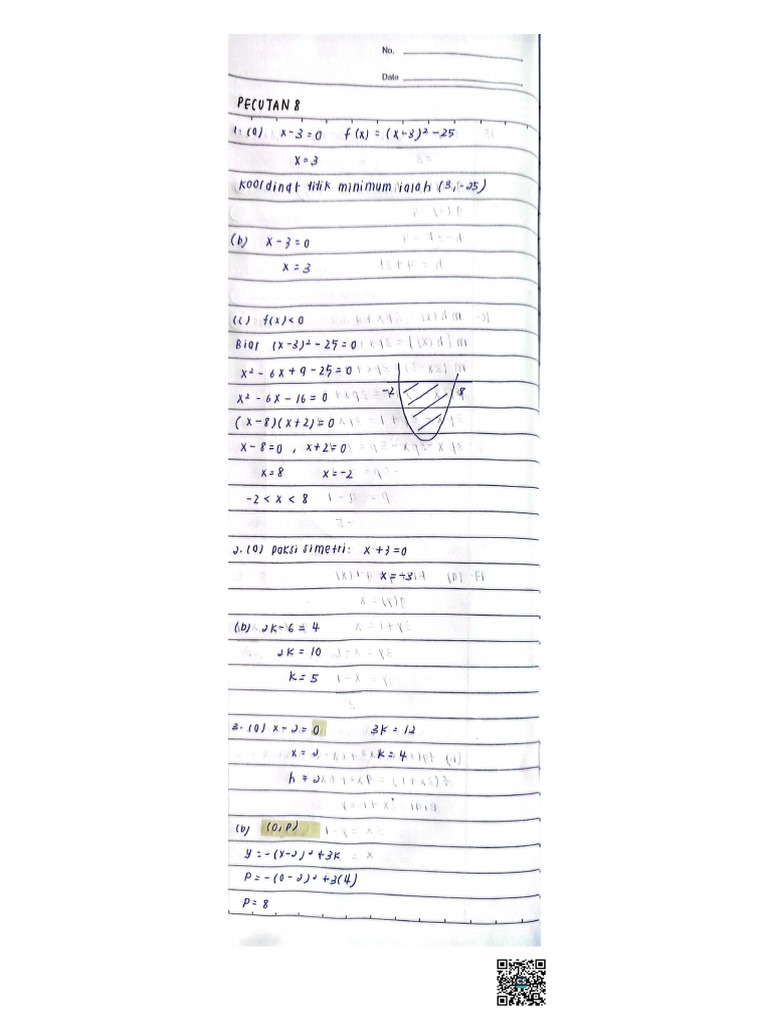 No.
Date
PECUTAN 8
1. (a) x-3=0 f(x) = (x-3)² - 25
x=3
Koordinat titik minimum ialah (3,-25)
(b) x-3=0
x=3
(c) f(x)<0
Biar (x-3)² - 25 = 0
x² - 6x + 9 - 25 = 0
x² - 6x - 16 = 0 -2 8
(x-8)(x+2)=0
x-8=0, x+2=0
x=8 x=-2
-2 < x < 8
2. (a) paksi simetri: x+3=0
x=-3
(b) 2k-6 = 4
2k = 10
k=5
3. (a) x-2=0 3k = 12
x=2 k=4
h=2
(b) (0,P)
y = -(x-2)² + 3k
P = -(0-2)² + 3(4)
P= 8